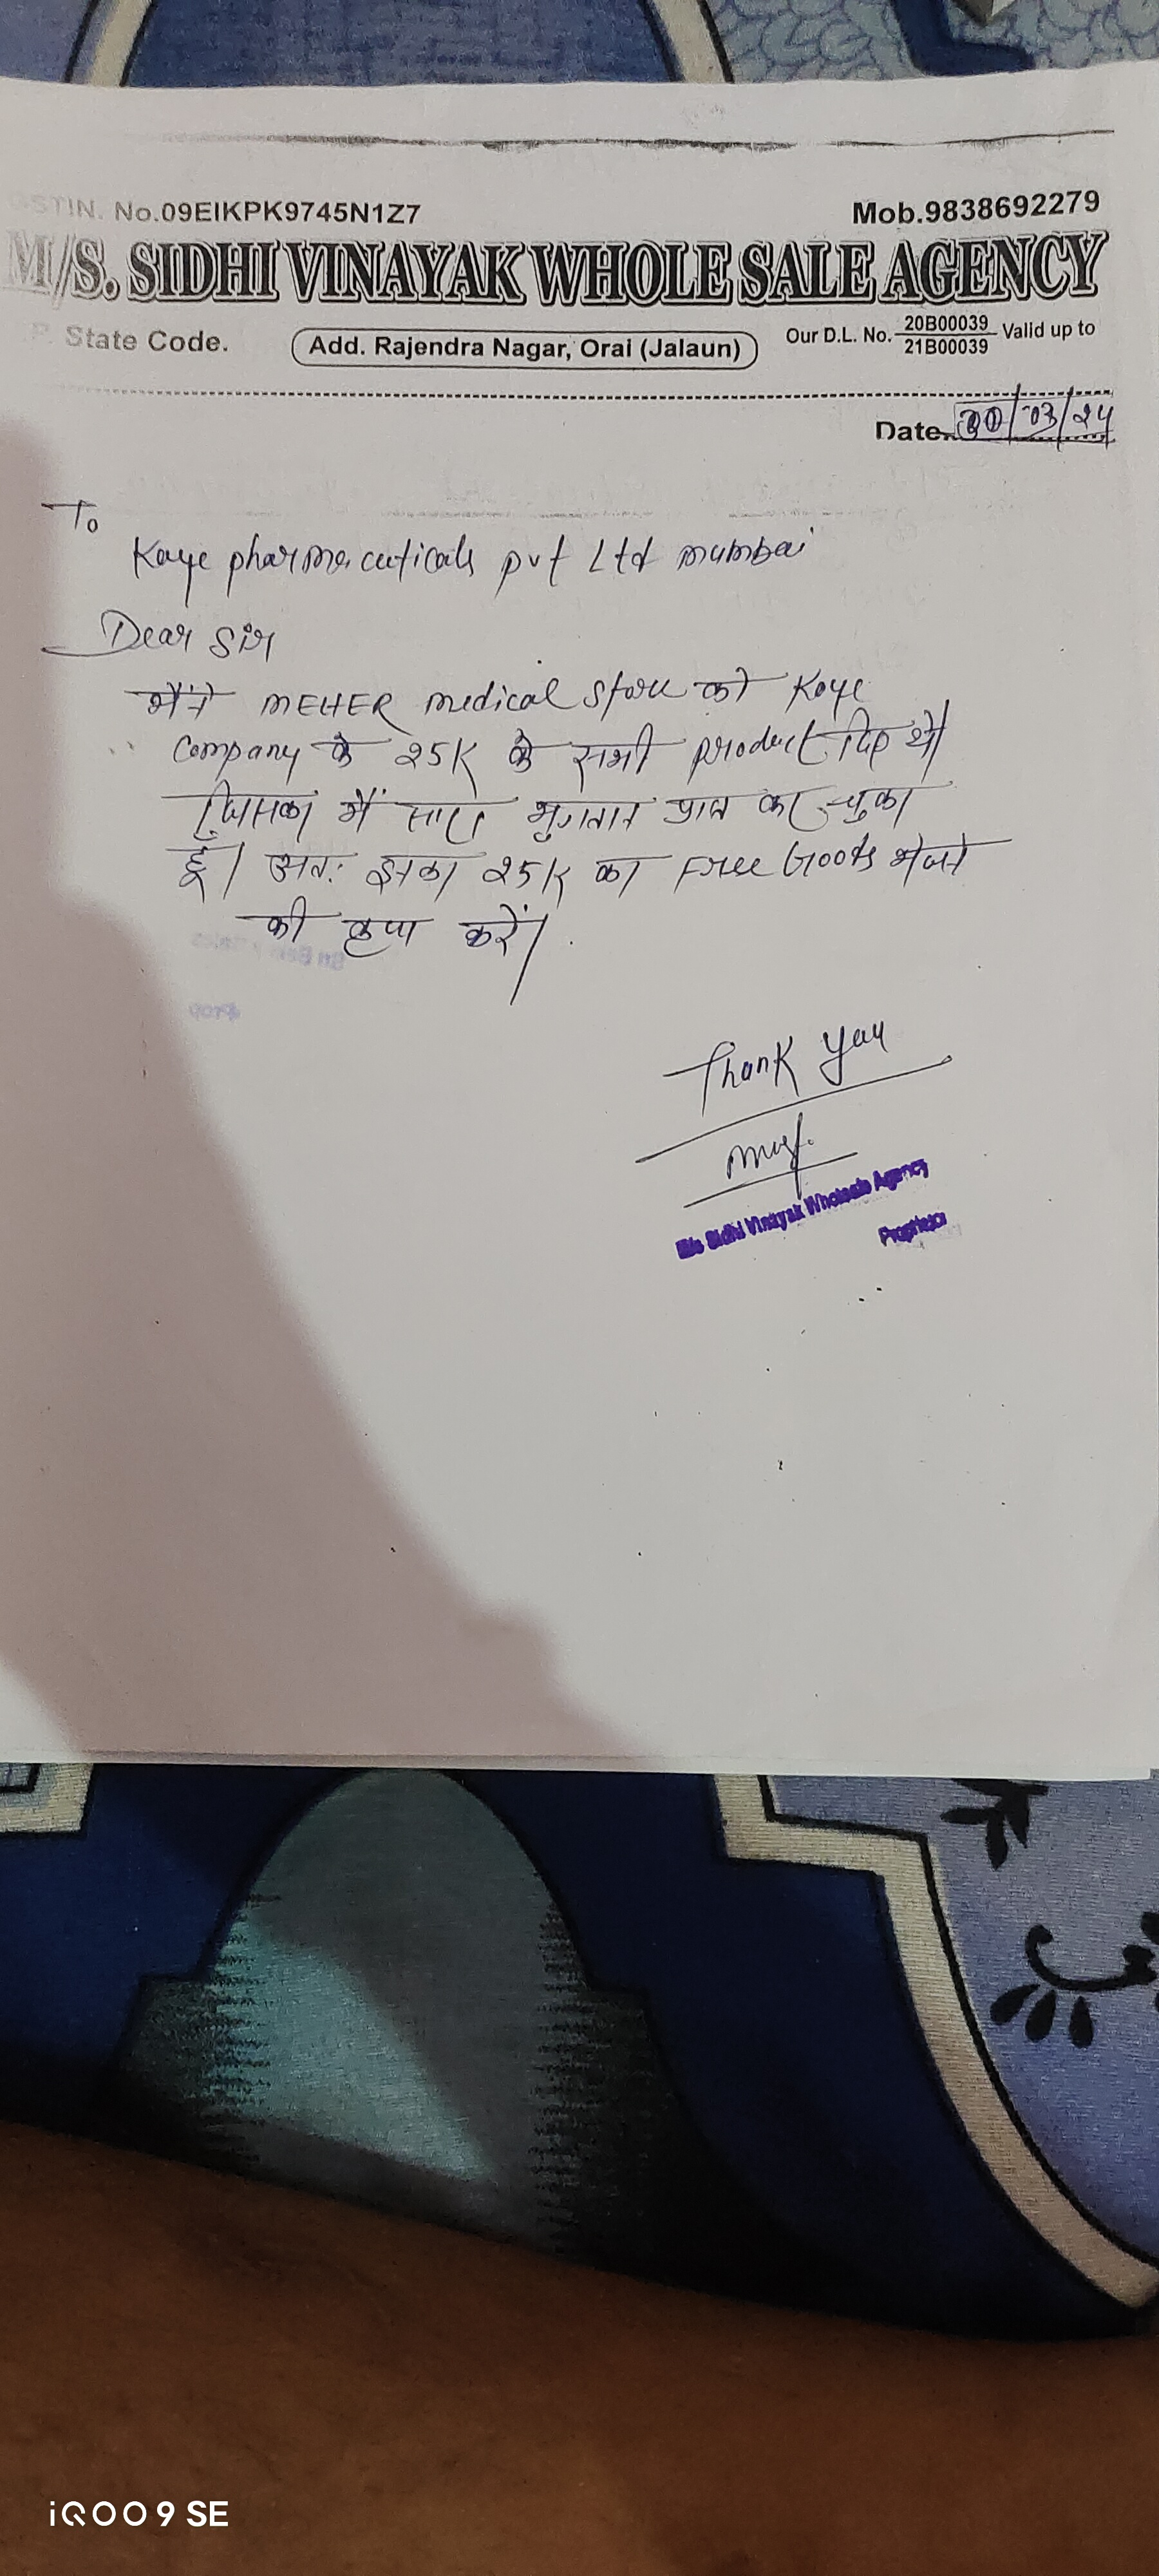 GSTIN. No.09EIKPK9745N1Z7 Mob.9838692279
M/S. SIDHI VINAYAK WHOLE SALE AGENCY
P. State Code. Add. Rajendra Nagar, Orai (Jalaun) Our D.L. No. 20B00039 Valid up to
21B00039
Date. 30/03/24
To
Kaye pharmaceuticals pvt Ltd mumbai
Dear Sir
मैंने MEHER medical store को Kaye
Company के 25K के सभी product दिए थे।
जिसका मैं सारा भुगतान प्राप्त कर चुका
हूँ। अतः इसका 25K का Free Goods भेजने
की कृपा करें।
Thank you
M/s Sidhi Vinayak Wholesale Agency
Proprietor
iQOO 9 SE